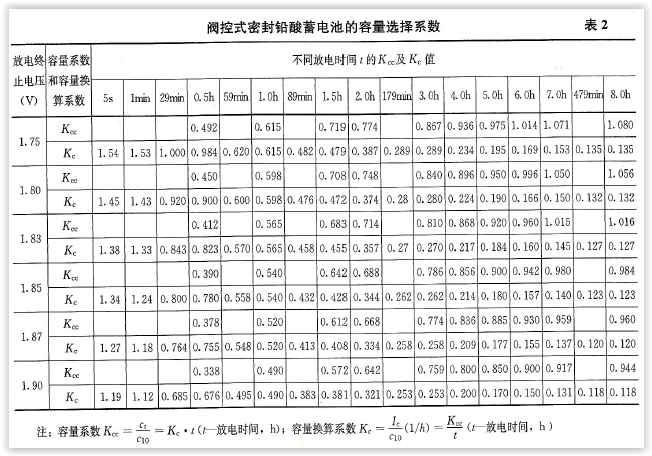 阀控式密封铅酸蓄电池的容量选择系数 表 2
放电终止电压(V) 容量系数和容量换算系数 不同放电时间 t 的 Kcc及 Kc 值
5s 1min 29min 0.5h 59min 1.0h 89min 1.5h 2.0h 179min 3.0h 4.0h 5.0h 6.0h 7.0h 479min 8.0h
1.75 Kcc 0.492 0.615 0.719 0.774 0.867 0.936 0.975 1.014 1.071 1.080
Kc 1.54 1.53 1.000 0.984 0.620 0.615 0.482 0.479 0.387 0.289 0.289 0.234 0.195 0.169 0.153 0.135 0.135
1.80 Kcc 0.450 0.598 0.708 0.748 0.840 0.896 0.950 0.996 1.050 1.056
Kc 1.45 1.43 0.920 0.900 0.600 0.598 0.476 0.472 0.374 0.28 0.280 0.224 0.190 0.166 0.150 0.132 0.132
1.83 Kcc 0.412 0.565 0.683 0.714 0.810 0.868 0.920 0.960 1.015 1.016
Kc 1.38 1.33 0.843 0.823 0.570 0.565 0.458 0.455 0.357 0.27 0.270 0.217 0.184 0.160 0.145 0.127 0.127
1.85 Kcc 0.390 0.540 0.642 0.688 0.786 0.856 0.900 0.942 0.980 0.984
Kc 1.34 1.24 0.800 0.780 0.558 0.540 0.432 0.428 0.344 0.262 0.262 0.214 0.180 0.157 0.140 0.123 0.123
1.87 Kcc 0.378 0.520 0.612 0.668 0.774 0.836 0.885 0.930 0.959 0.960
Kc 1.27 1.18 0.764 0.755 0.548 0.520 0.413 0.408 0.334 0.258 0.258 0.209 0.177 0.155 0.137 0.120 0.120
1.90 Kcc 0.338 0.490 0.572 0.642 0.759 0.800 0.850 0.900 0.917 0.944
Kc 1.19 1.12 0.685 0.676 0.495 0.490 0.383 0.381 0.321 0.253 0.253 0.200 0.170 0.150 0.131 0.118 0.118
注: 容量系数 Kcc=ct/c10=Kc·t (t—放电时间, h); 容量换算系数 Kc=Ic/c10(1/h)=Kcc/t (t—放电时间, h)